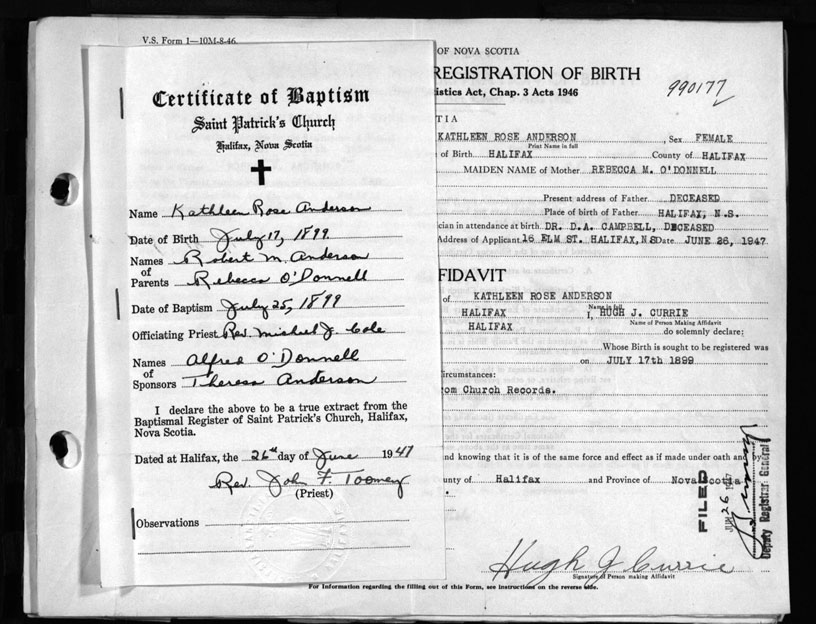 V.S. Form 1—10M-8-46
Certificate of Baptism
Saint Patrick's Church
Halifax, Nova Scotia
Name Kathleen Rose Anderson
Date of Birth July 17, 1899
Names Robert M. Anderson
of
Parents Rebecca O'Donnell
Date of Baptism July 25, 1899
Officiating Priest Rev. Michael J. Cole
Names Alfred O'Donnell
of
Sponsors Theresa Anderson
I declare the above to be a true extract from the
Baptismal Register of Saint Patrick's Church, Halifax,
Nova Scotia.
Dated at Halifax, the 26th day of June 1947
Rev. John F. Toomey
(Priest)
Observations
OF NOVA SCOTIA
REGISTRATION OF BIRTH
istics Act, Chap. 3 Acts 1946
990177
TIA
KATHLEEN ROSE ANDERSON Sex FEMALE
Print Name in full
of Birth HALIFAX County of HALIFAX
MAIDEN NAME of Mother REBECCA M. O'DONNELL
Present address of Father DECEASED
Place of birth of Father HALIFAX, N.S.
cian in attendance at birth DR. D.A. CAMPBELL, DECEASED
Address of Applicant 16 ELM ST. HALIFAX, N.S. Date JUNE 26, 1947.
FIDAVIT
of KATHLEEN ROSE ANDERSON
Name in full
HALIFAX I, HUGH J. CURRIE
Name of Person Making Affidavit
HALIFAX do solemnly declare;
Whose Birth is sought to be registered was
on JULY 17th 1899
ircumstances:
rom Church Records.
and knowing that it is of the same force and effect as if made under oath and by
unty of Halifax and Province of Nova Scotia
FILED
JUN 26 1947
Deputy Registrar General
Hugh J Currie
Signature of Person making Affidavit
For Information regarding the filling out of this Form, see instructions on the reverse side.